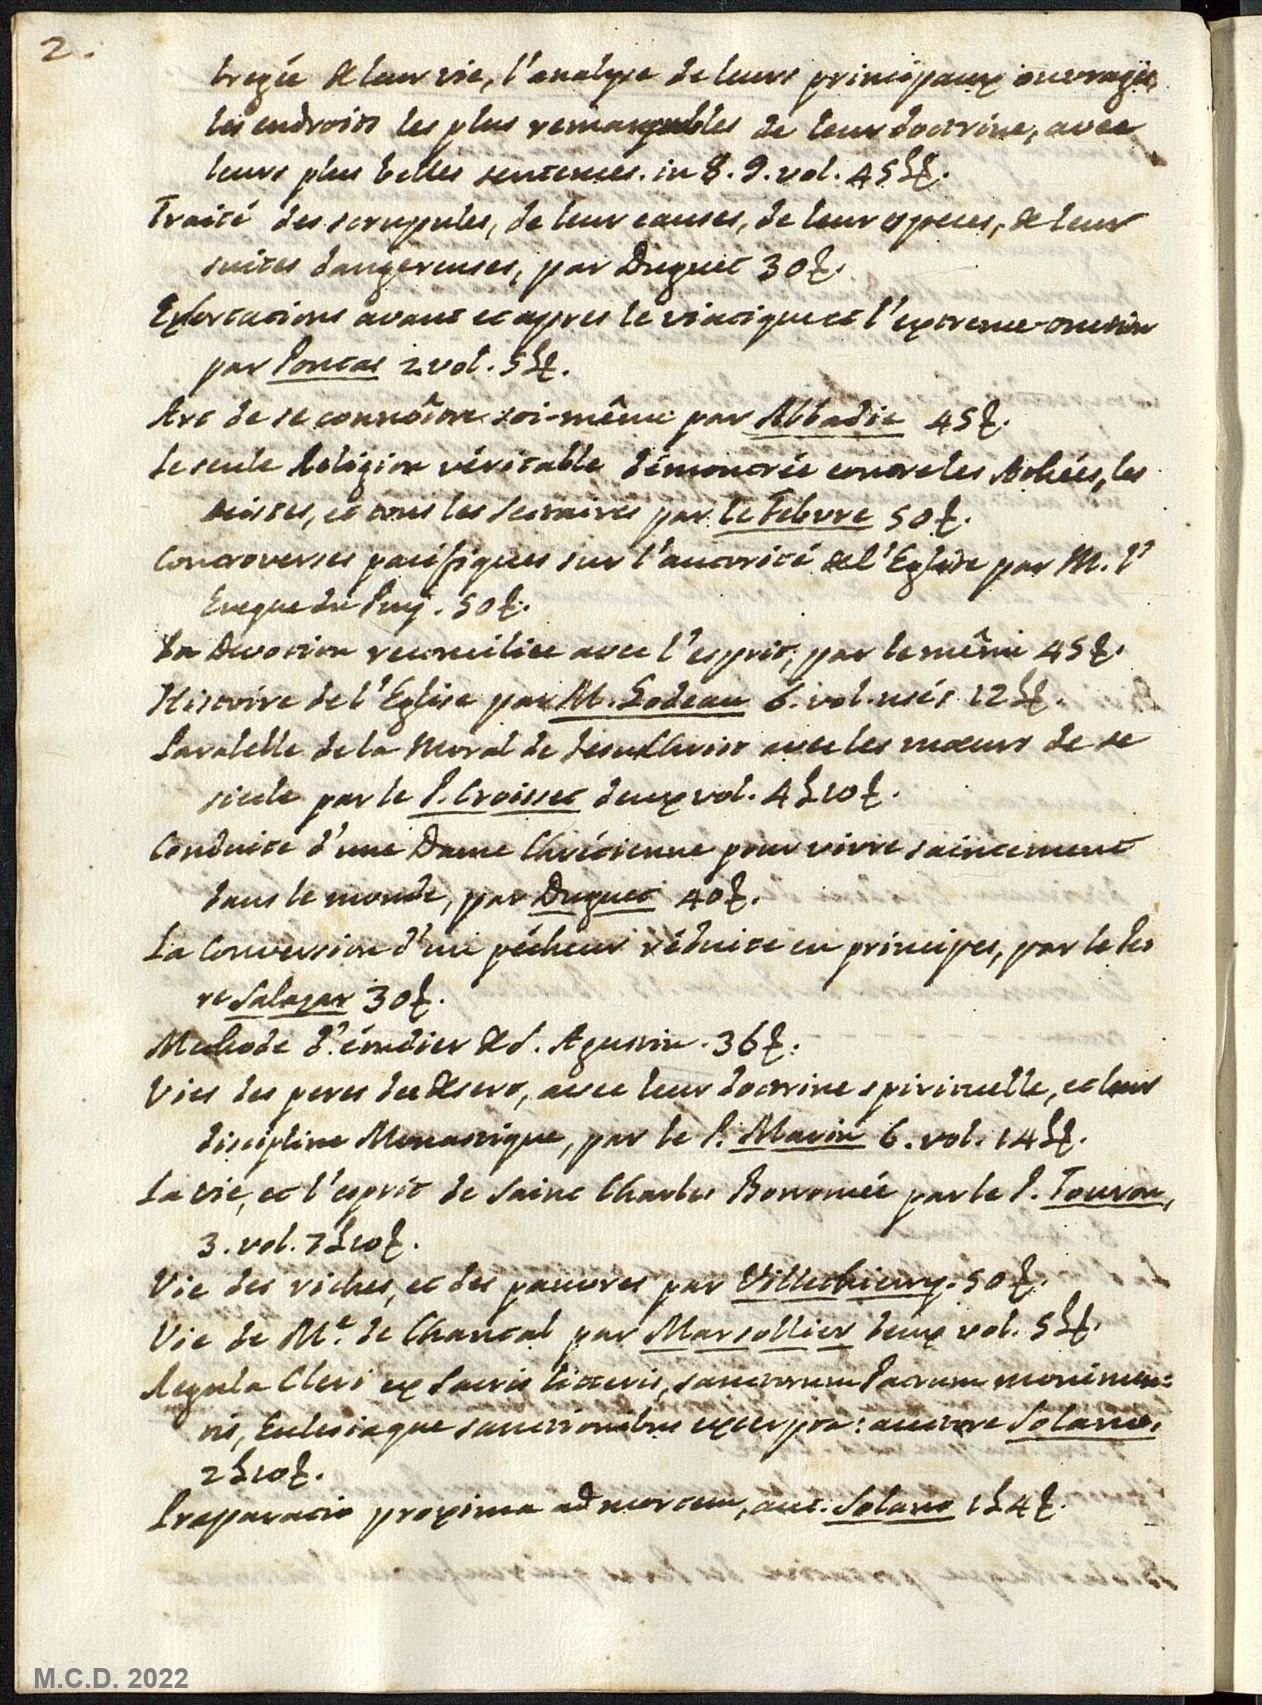 2.
bregée de leur vie, l'analyse de leurs principaux ouvrages,
les endroits les plus remarquables de leur doctrine, avec
leurs plus belles sentences. in 8. 9. vol. 45 ₶.
Traité des scrupules, de leur causes, de leur especes, de leur
suites dangereuses, par Duguet 30 ſ.
Exhortations avant et apres le viatique et l'extreme-onction
par Pontas 2 vol. 5 ₶.
Art de se connoître soi-même par Abbadie 45 ſ.
Le seule Religion véritable démontrée contre les Athées, les
deistes, et tous les sectaires par le Febvre 50 ſ.
Controverses pacifiques sur l'autorité de l'Eglise par M. l'
Eveque du Puy. 50 ſ.
La Devotion reconciliée avec l'esprit, par le même 45 ſ.
Histoire de l'Eglise par M. Godeau 6. vol. usés 12 ₶.
Paralelle de la Moral de Jesu Christ avec les mœurs de se
siecle par le P. Croisset deux vol. 4 ₶ 10 ſ.
Conduite d'une Dame Chrétienne pour vivre saintement
dans le monde, par Duguet 40 ſ.
La Conversion d'un pécheur réduite en principes, par le Pe
re Salazar 30 ſ.
Methode d'étudier de S. Agustin. 36 ſ.
Vies des peres du desert, avec leur doctrine spirituelle, et leur
discipline Monastique, par le P. Marin 6. vol. 14 ₶.
La vie, et l'esprit de Saint Charles Borromée par le P. Touron,
3. vol. 7 ₶ 10 ſ.
Vie des riches, et des pauvres par Villethierry. 50 ſ.
Vie de Me. de Chantal par Marsollier deux vol. 5 ₶.
Regula Cleri ex Sacris litteris, sanctorum Patrum monimen=
tis, Ecclesiaque sanctionibus excerpta: auctore Solano.
2 ₶ 10 ſ.
Praparatio proxima ad mortem, auc. Solano 1 ₶ 4 ſ.
M.C.D. 2022